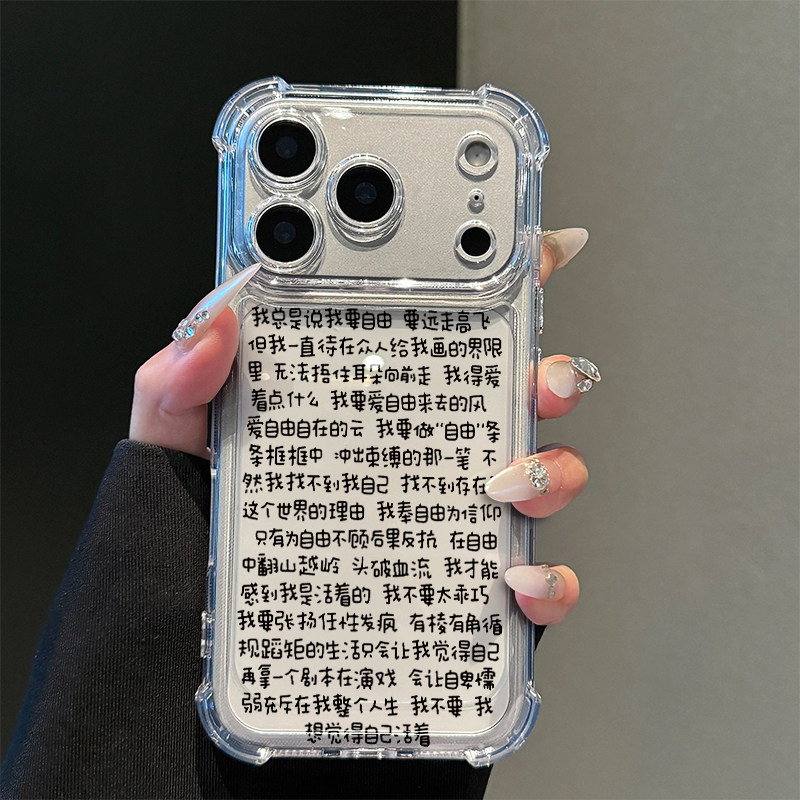 我总是说我要自由 要远走高飞
但我一直待在众人给我画的界限
里 无法捂住耳朵向前走 我得爱
着点什么 我要爱自由来去的风
爱自由自在的云 我要做“自由”条
条框框中 冲出束缚的那一笔 不
然我找不到我自己 找不到存在
这个世界的理由 我奉自由为信仰
只有为自由不顾后果反抗 在自由
中翻山越岭 头破血流 我才能
感到我是活着的 我不要太乖巧
我要张扬任性发疯 有棱有角循
规蹈矩的生活只会让我觉得自己
再拿一个剧本在演戏 会让自卑懦
弱充斥在我整个人生 我不要 我
想觉得自己活着